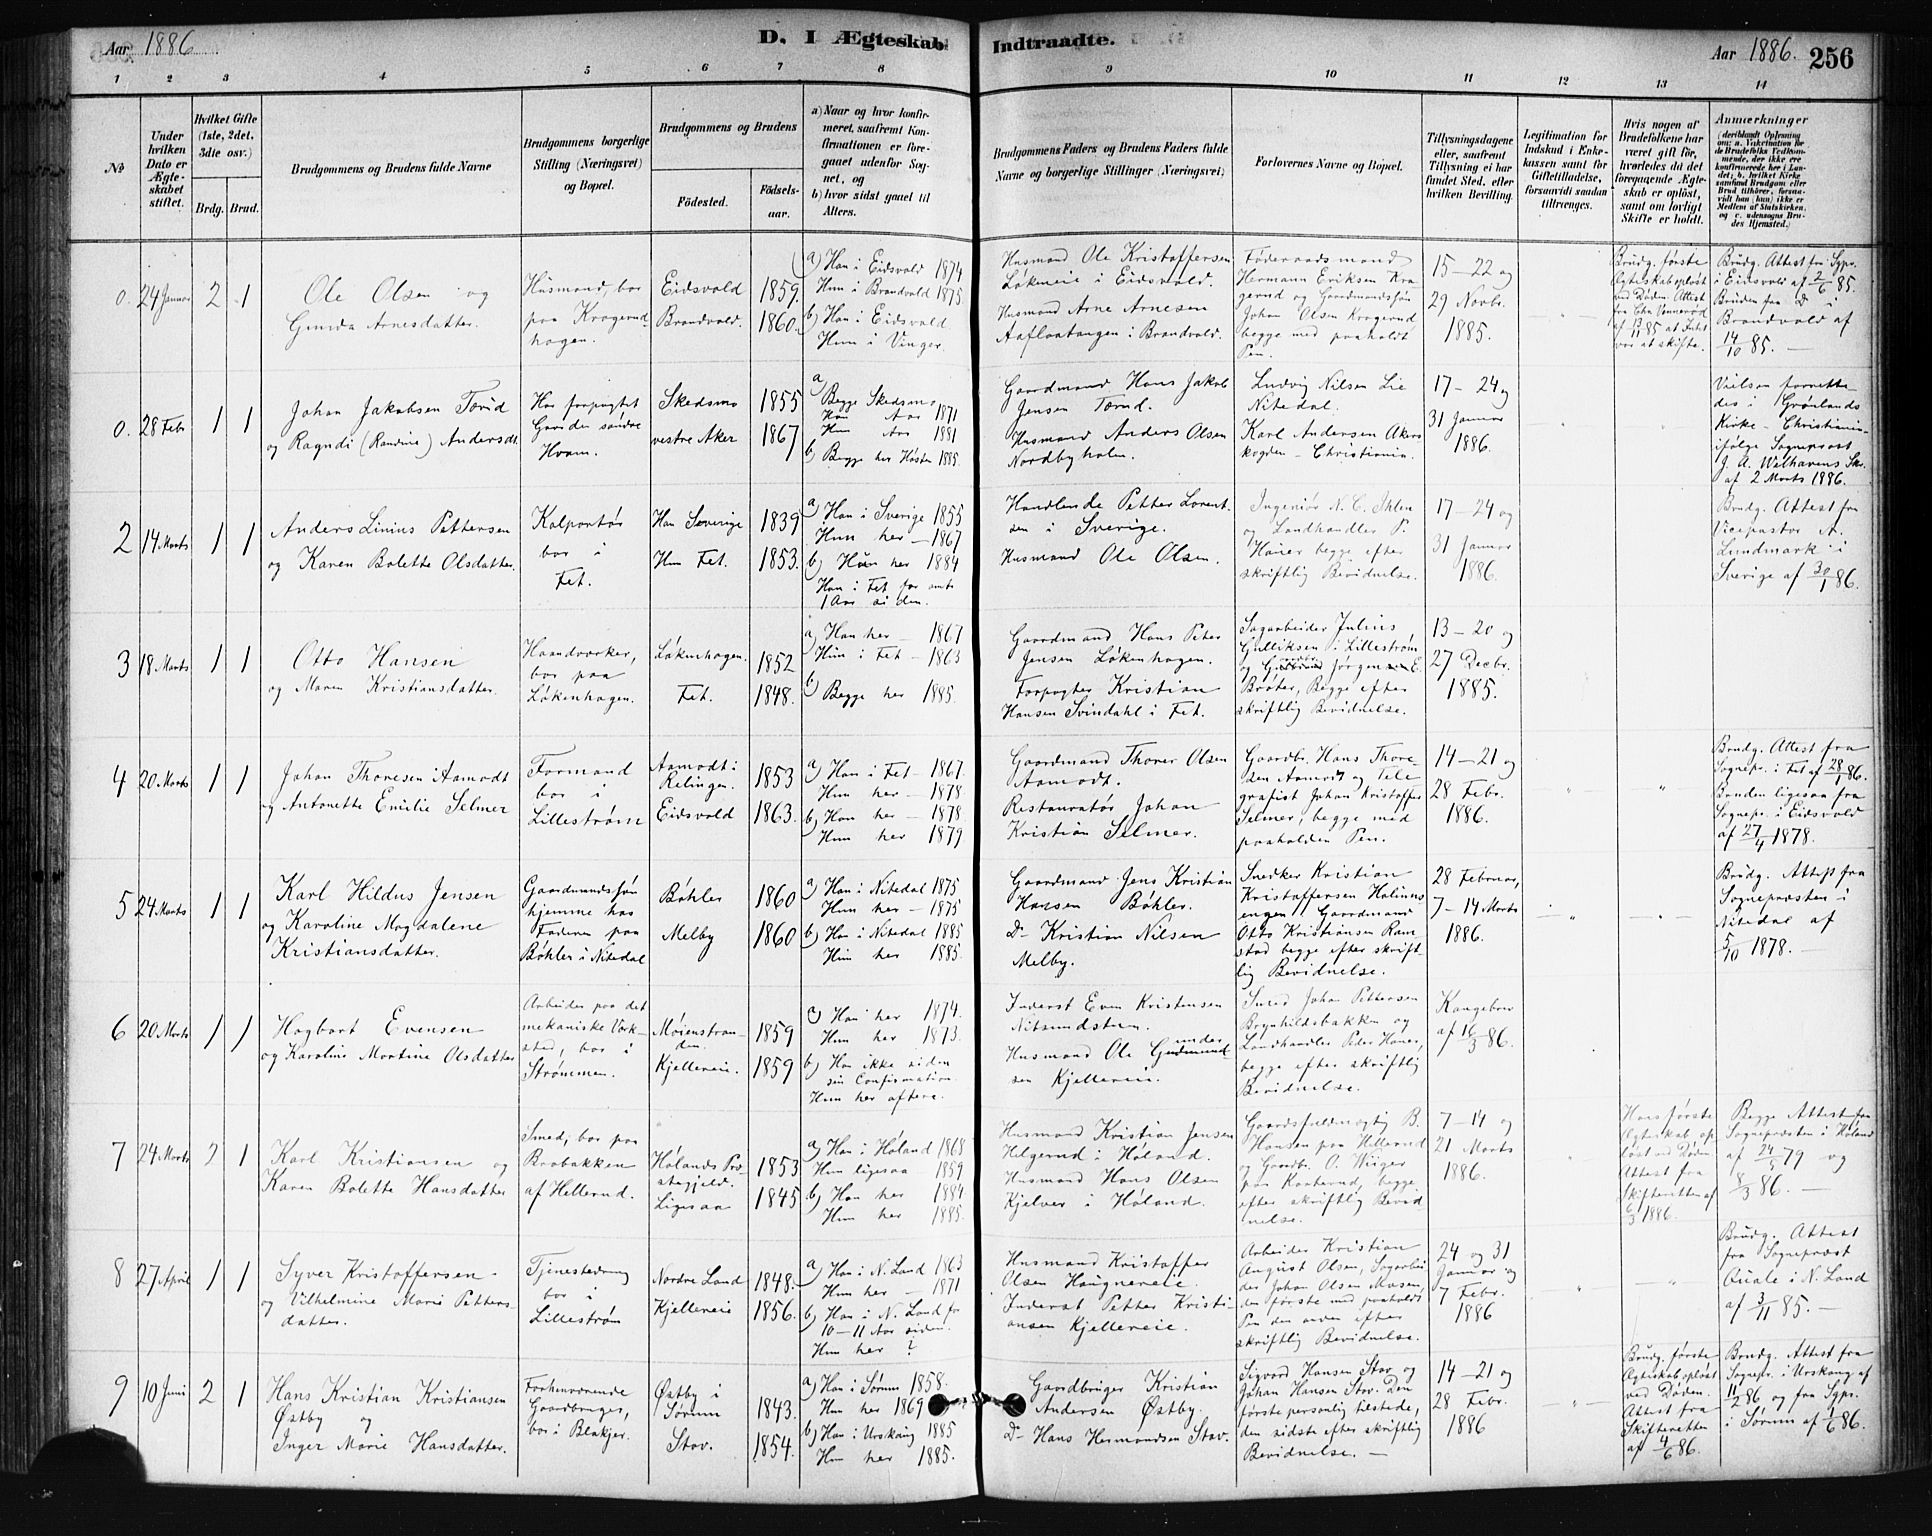 Aar 1886
D. I Ægteskab
Indtraadte.
Aar 1886. 256
1 2 3 4 5 6 7 8 9 10 11 12 13 14
No
Under
hvilken
Dato er
Ægte-
skabet
stiftet.
Hvilket Gifte
(1ste, 2det,
3die osv.)
Brdg. Brud.
Brudgommens og Brudens fulde Navne
Brudgommens borgerlige
Stilling (Næringsvei)
og Bopæl.
Brudgommens og Brudens
Fødested.
Fødsels-
aar.
a) Naar og hvor konfir-
meret, saafremt Kon-
firmationen er fore-
gaaet udenfor Sog-
net, og
b) hvor sidst gaaet til
Alters.
Brudgommens Faders og Brudens Faders fulde
Navne og borgerlige Stillinger (Næringsvei)
Forlovernes Navne og Bopæl.
Tillysningsdagene
eller, saafremt
Tillysning ei har
fundet Sted, efter
hvilken Bevilling.
Legitimation for
Indskud i Enke-
kassen samt for
Giftetilladelse,
forsaavidt saadan
tiltrænges.
Hvis nogen af
Brudefolkene har
været gift før,
hvorledes da det
foregaaende Ægte-
skab er opløst,
samt om lovligt
Skifte er holdt.
Anmærkninger
(deriblandt Oplysning
om: a. Vakcination for
de Brudefolks Vedkom-
mende, der ikke ere
konfirmerede her i Lan-
det; b. hvilket Kirke
samfund Brudgom eller
Brud tilhører, forsaa-
vidt han (hun) ikke er
Medlem af Statskirken,
og c. udensogns Bru-
des Hjemsted.)
0. 24 Januar 2 1
Ole Olsen og
Gunda Arnesdatter.
Husmand, bor
paa Kragerud-
hagen.
Eidsvold 1859.
Brandvold. 1860.
a) Han i Eidsvold 1874
Hun i Brandvold 1875
b) Han i Eidsvold
Hun i Vinger.
Husmand Ole Kristoffersen
Løkneie i Eidsvold.
Husmand Arne Arnesen
Aafloatangen i Brandvold.
Føderaadsmand
Hermann Eriksen Kra
gerud og Gaardmandssøn
Johan Olsen Kragerud
begge med paaholdt
Pen.
15 - 22 og
29 Novbr.
1885.
Brudg. første
Ægteskab opløst
ved Døden. Attest
af 13/11 85 at Intet
var at skifte.
Brudg. Attest fra Sgpr.
i Eidsvold af 2/6 85.
Bruden fra Do i
Brandvold af
14/10 85.
0. 28 Febr 1 1
Johan Jakobsen Torud
og Ragndi (Randine) Andersdt.
Har forpagtet
Gaarden søndre
Hvam.
Skedsmo 1855
vestre Aker 1867
a) Begge Skedsmo
Han Aar 1871
Hun Aar 1881
b) Begge her Høsten 1885.
Gaardmand Hans Jakob
Jensen Torud.
Husmand Anders Olsen
Nordbyholm.
Ludvig Nilsen Lie
Nitedal.
Karl Andersen Akers
kogden - Christiania.
17 - 24 og
31 Januar
1886.
Vielsen forrette
des i Grønlands
Kirke - Christiania
ifølge Sogneprest
J. A. Welhavens Skr.
af 2 Marts 1886.
2 14 Marts 1 1
Anders Linius Pettersen
og Karen Bolette Olsdatter.
Kolportør
bor i
Fet.
Han Sverige 1839
Hun Fet. 1853.
a) Han i Sverige 1855
Hun her - 1867
b) Hun her 1884
Han i Fet for omt.
1 Aar siden.
Handlende Petter Lorent
sen i Sverige.
Husmand Ole Olsen.
Ingeniør N. C. Ihlen
og Landhandler P.
Haier begge efter
skriftlig Bevidnelse.
17 - 24 og
31 Januar
1886.
Brudg. Attest fra
Vicepastor A.
Lundmark i
Sverige af 30/1 86.
3 18 Marts 1 1
Otto Hansen
og Maren Kristiansdatter.
Haandverker,
bor paa
Løkenhagen.
Løkenhagen. 1852
Fet. 1848.
a) Han her - 1867
Hun i Fet - 1863
b) Begge her 1885.
Gaardmand Hans Peter
Jensen Løkenhagen.
Forpagter Kristian
Hansen Svindahl i Fet.
Sagarbeider Julius
Gulliksen i Lillestrøm
og Jørgen E.
Brøter, Begge efter
skriftlig Bevidnelse.
13 - 20 og
27 Decbr.
1885.
4 20 Marts 1 1
Johan Thoresen Aamodt
og Antonette Emilie Selmer
Formand
bor i
Lillestrøm
Aamodt i
Relingen. 1853
Eidsvold 1863.
a) Han i Fet - 1867.
Hun her - 1878
b) Han her - 1878.
Hun her 1879
Gaardmand Thorer Olsen
Aamodt.
Restauratør Johan
Kristian Selmer.
Gaardbr. Hans Thore-
sen Aamodt og Tele
grafist Johan Kristoffer
Selmer, begge med
paaholden Pen.
14 - 21 og
28 Febr.
1886.
Brudg. Attest fra
Sognepr. i Fet af 28/1 86.
Bruden ligesaa fra
Sognepr. i Eidsvold
af 27/4 1878.
5 24 Marts 1 1
Karl Hildus Jensen
og Karoline Magdalene
Kristiansdatter.
Gaardmandssøn
hjemme hos
Faderen paa
Bøhler i Nitedal
Bøhler 1860
Melby 1860
a) Han i Nitedal 1875
Hun her - 1875
b) Han i Nitedal 1885
Hun her 1885.
Gaardmand Jens Kristian
Hansen Bøhler.
Do Kristian Nilsen
Melby.
Snedker Kristian
Kristoffersen Holmms
engen Gaardmand
Otto Kristiansen Ram
stad begge efter skrift-
lig Bevidnelse.
28 Februar,
7 - 14 Marts
1886.
Brudg. Attest fra
Sognepresten i
Nitedal af
5/10 1878.
6 20 Marts 1 1
Hagbart Evensen
og Karoline Martine Olsdatter
Arbeider paa det
mekaniske Værk-
sted, bor i
Strømmen.
Møienstran-
den. 1859
Kjellereie. 1859
a) Han her 1874.
Hun her 1873.
b) Han ikke siden
sin Confirmation.
Hun her oftere.
Inderst Even Kristensen
Nitsundsteen.
Husmand Ole Gunder-
sen Kjellereie.
Smed Johan Pettersen
Brynhildsbakken og
Landhandler Peder Haner,
begge efter skriftlig
Bevidnelse.
Kongebrev
af 16/3 86.
7 24 Marts 2 1
Karl Kristiansen og
Karen Bolette Hansdatter
Smed, bor paa
Brobakken
af Hellerud.
Hølands Pre
stegjeld. 1853
Ligesaa 1845
a) Han i Høland 1868
Hun ligesaa - 1859
b) Han her 1884
Hun her 1885.
Husmand Kristian Jensen
Helgerud i Høland.
Husmand Hans Olsen
Kjelver i Høland.
Gaardsfuldmægtig B.
Hansen paa Hellerud
og Gaardbr. O. Wiiger
paa Kaaterud, begge
efter skriftlig Bevid
nelse.
7 - 14 og
21 Marts
1886.
Hans første
Ægteskab op
løst ved Døden.
Attest fra
Skifteretten af
6/3 1886.
Begge Attest fra
Sognepresten i Høland
af 24/5 79 og
8/3 86.
8 27 April 1 1
Syver Kristoffersen
og Vilhelmine Marie Petters
datter.
Tjenestedreng
bor i
Lillestrøm
Nordre Land 1848.
Kjellereie 1856.
a) Han i N. Land 1863
Hun her - 1871
b) Han i N. Land for
10 - 11 Aar siden.
Hun her ?
Husmand Kristoffer
Olsen Haugnereie.
Inderst Petter Kristi-
ansen Kjellereie.
Arbeider Kristian
August Olsen, Sagarbei
der Johan Olsen Mosen,
den første med paaholdt
Pen den anden efter
skriftlig Bevidnelse.
24 og 31
Januar og
7 Febr.
1886
Brudg. Attest
fra Sogneprest
Quale i N. Land
af 3/11 85.
9 10 Juni 2 1
Hans Kristian Kristiansen
Østby og
Inger Marie Hansdatter.
Forhenværende
Gaardbruger,
bor i Blakjer.
Østby i
Sørum 1843.
Stav. 1854.
a) Han i Sørum 1858.
Hun her 1869
b) Han i Urskoug 1885
Hun her 1885.
Gaardbruger Kristian
Andersen Østby.
Do Hans Hermandsen Stav.
Sigvard Hansen Stav og
Johan Hansen Stav. Den
første personlig tilstede,
den sidste efter skriftlig
Bevidnelse.
14 - 21 og
28 Febr.
1886
Brudg. første
Ægteskab opløst
ved Døden.
Attest fra
Skifteretten
af 4/6 86.
Brudg. Attest fra
Sognepr. i Urskoug af
11/2 86 og fra Sgpr.
i Sørum af 1/6 86.